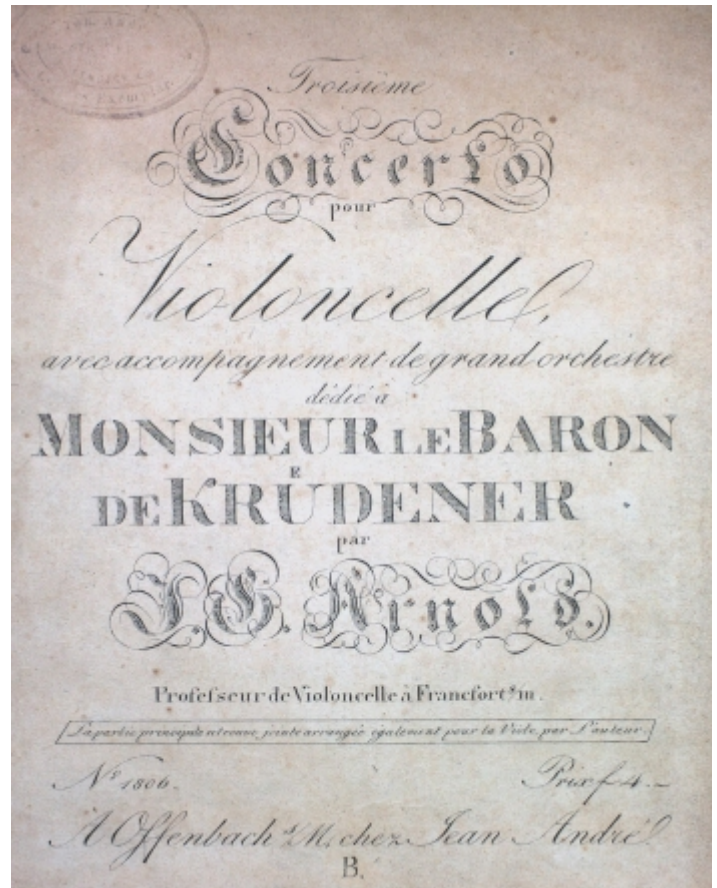 Troisième
Concerto
pour
Violoncelle,
avec accompagnement de grand orchestre
dédié à
MONSIEUR LE BARON
DE KRUͤDENER
par
J. G. Arnold.
Professeur de Violoncelle à Francfort s/m.
La partie principale jointe arrangée également pour la Flûte, par l'auteur.
Nº 1806. Prix f 4.-
A Offenbach s/M, chez Jean André.
B.